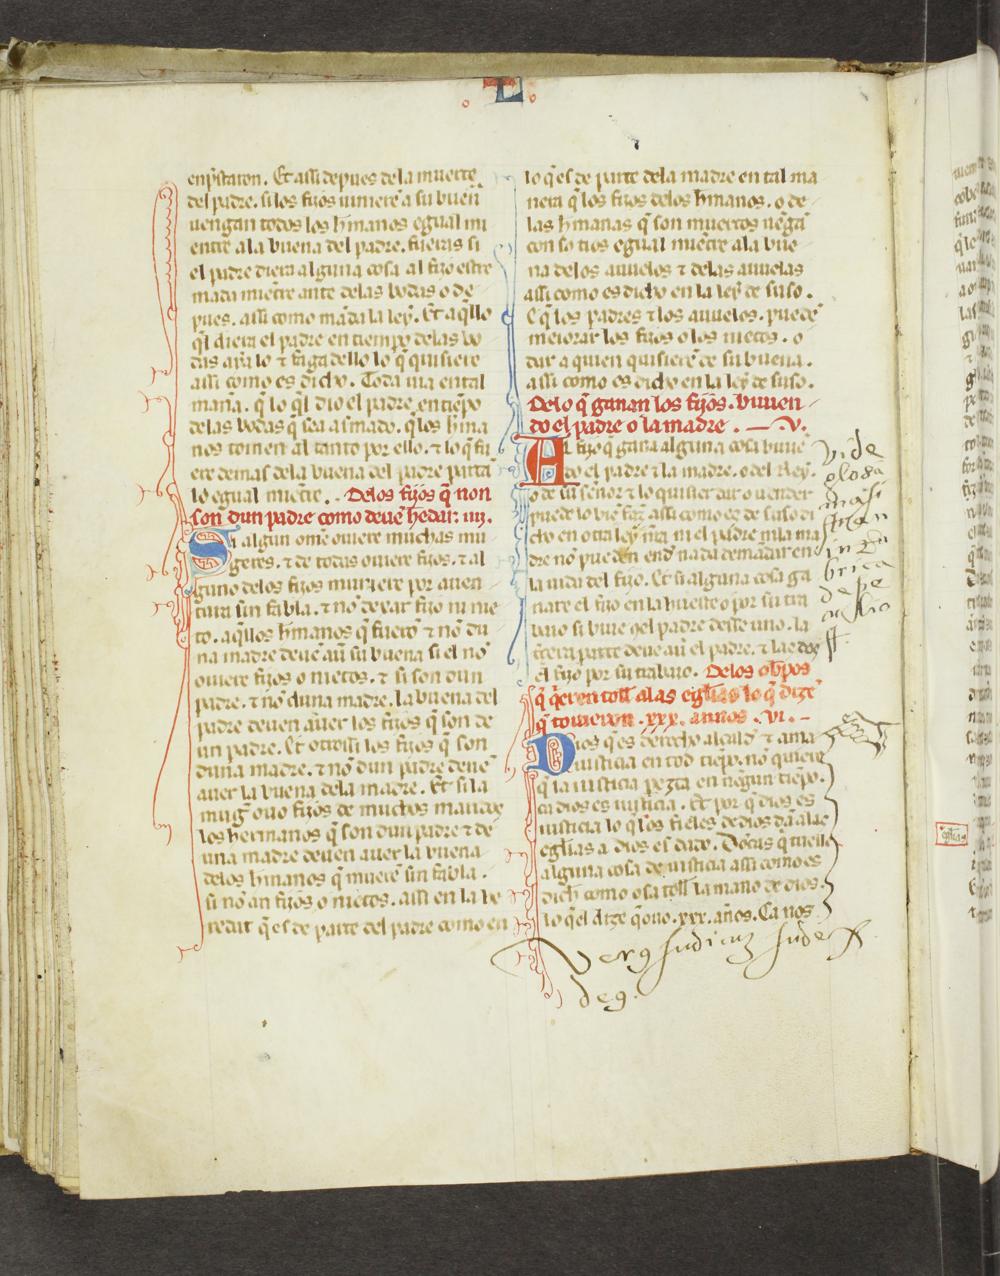 L
enp̃staron. Et assi depues dela muerte
del padre. si los fijos uiniere a su buen
uengan todos los h̃manos egual mi
entre ala buena del padre. fueras si
el padre diera alguna cosa al fijo estre
mada miẽtre ante delas bodas o de
pues. assi como mãda la ley. Et aq̃llo
q̃l diera el padre en tiempo delas bo
das aya lo ⁊ faga dello lo q̃ quisiere
assi como es dicho. Toda uia en tal
mañ̃a. q̃ lo q̃l dio el padre en tiẽpo
delas bodas q̃ sea asmado. q̃ los h̃ma
nos tomen al tanto por ello. ⁊ lo q̃ fu
ere demas dela buena del padre partã
lo egual miẽtre. Delos fijos q̃ non
son dun padre como deuẽ hedar: iiij.
Si algun om̃e ouiere muchas mu
geres. ⁊ de todas ouiere fijos. ⁊ al
guno delos fijos muriere por auen
tura sin fabla. ⁊ nõ dexar fijo ni nie
to. aq̃llos h̃manos q̃ fuerõ ⁊ nõ du
na madre deuẽ auẽ su buena si el nõ
ouiere fijos o nietos. ⁊ si son dun
padre. ⁊ nõ duna madre. la buena del
padre deuen auer los fijos q̃ son de
un padre. Et otrossi los fijos q̃ son
duna madre. ⁊ nõ dun padre deuẽ
auer la buena dela madre. Et si la
mug̃ ouo fijos de muchos maridos
los hermanos q̃ son dun padre ⁊ de
una madre deuen auer la buena
delos h̃manos q̃ muerẽ sin fabla.
si nõ an fijos o nietos. assi en la he
redat q̃ es de parte del padre como en
lo q̃ es de parte dela madre en tal ma
nera q̃ los fijos delos h̃manos. o de
las h̃manas q̃ son muertos uẽgã
con so tios egual miẽtre ala bue
na delos auuelos ⁊ delas auuelas
assi como es dicho en la ley de suso.
E q̃ los padres ⁊ los auuelos. puedẽ
meiorar los fijos o los nietos. o
dar a quien quisierẽ de su buena.
assi como es dicho en la ley de suso.
Delo q̃ ganan los fijos. biuien
do el padre o la madre. v.
El fijo q̃ gana alguna cosa biuiẽ
do el padre ⁊ la madre. o del Rey.
o de su señor ⁊ lo quisier dar o uender
puede lo biẽ faz̃ assi como es de suso di
cho en otra ley ñra ni el padre ni la ma
dre no pueden end̃ nada demãdar en
la uida del fijo. Et si alguna cosa ga
nare el fijo en la hueste o por su tra
baio si biue q̃el padre desse uno. la
terc̃a parte deue auẽ el padre. ⁊ las dos
el fijo por su trabaio. Delos ob̃pos
q̃ q̃eren toll̃ alas eglẽias lo q̃ dizẽ
q̃ touieron .xxx. annos .vi.
Dios q̃ es derecho alcald̃ ⁊ ama
iusticia en tod tiẽpo. nõ quiere
q̃ la iusticia perezca en nẽgun tiẽpo.
ca dios es iusticia. Et por q̃ dios es
iusticia lo q̃ los fieles de dios dã alas
eglẽias a dios es dado. Doncas q̃ tuelle
alguna cosa de iusticia assi como es
dich̃ como osa toll̃ la mano de dios.
lo q̃el dize q̃ ouo .xxx. años. Ca nos
vide
glosa
de pe
culio
ff.
Iudicium Iude